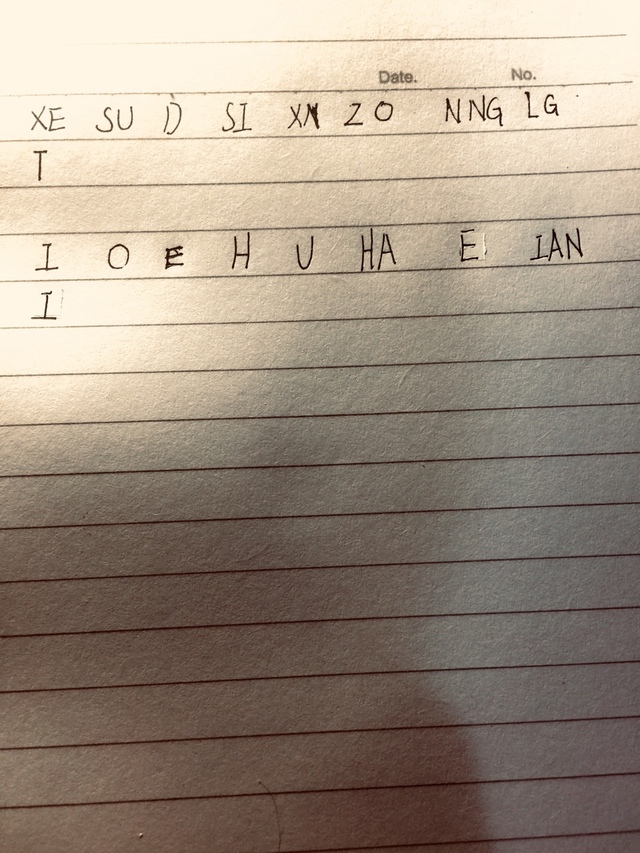 Date. No.
XE SU D SI XN ZO NNG LG
T
I O E H U HA E IAN
I